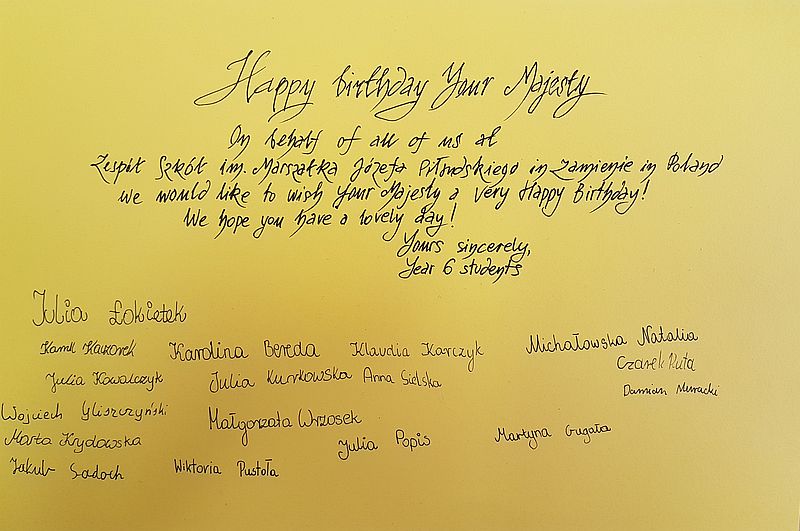 Happy birthday Your Majesty
On behalf of all of us at
Zespół Szkół im. Marszałka Józefa Piłsudskiego in Zamienie in Poland
we would like to wish Your Majesty a Very Happy Birthday!
We hope you have a lovely day!
Yours sincerely,
Year 6 students
Julia Łokietek
Kamil Karolina Bereda Klaudia Karczyk Michałowska Natalia
Czarek Ruta
Julia Kowalczyk Julia Kurkowska Anna Sielska
Damian Muracki
Wojciech Gliszczyński Małgorzata Wrzosek
Marta Krydowska Julia Popis Martyna Gugała
Jakub Sadoch Wiktoria Pustoła